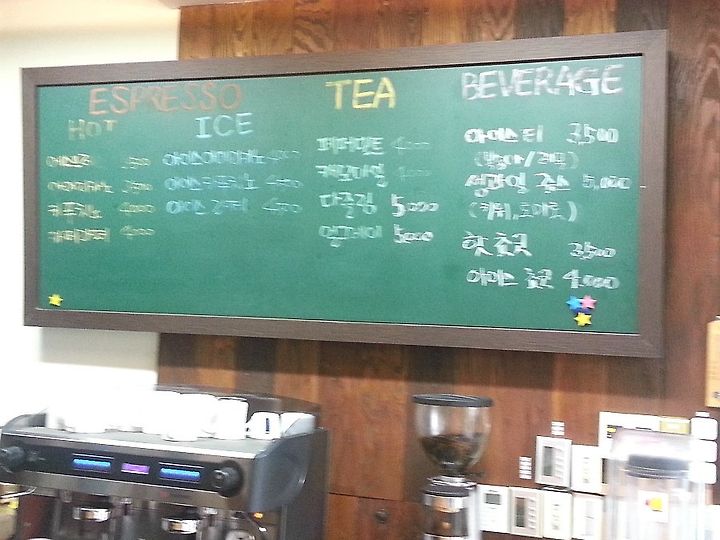 ESPRESSO
HOT
에스프레소 3,500
아메리카노 3,500
카푸치노 4,000
카페라떼 4,000
ICE
아이스아메리카노 4,000
아이스카푸치노
아이스 라떼
TEA
페퍼민트 4,000
캐모마일 4,000
다즐링 5,000
얼그레이 5,000
BEVERAGE
아이스티 3,500
(복숭아/레몬)
생과일 쥬스 5,000
(키위, 토마토)
핫 초코 3,500
아이스 초코 4,000